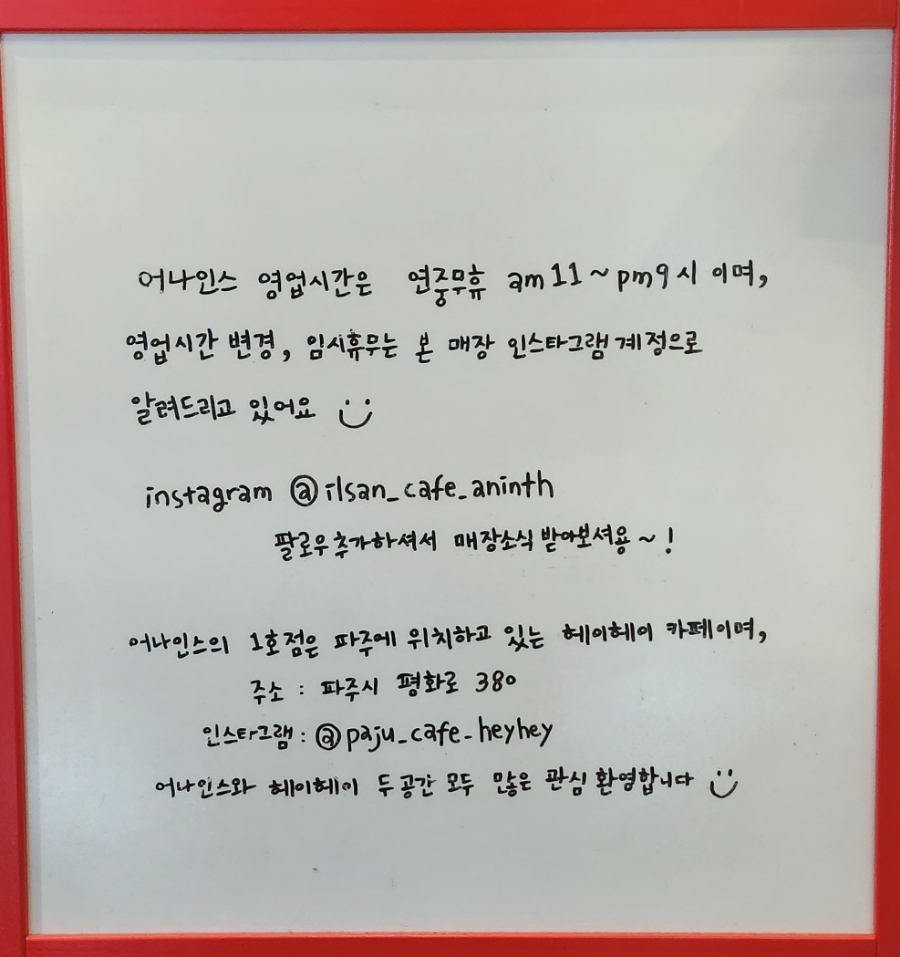 어나인스 영업시간은 연중무휴 am11~pm9시 이며,
영업시간 변경, 임시휴무는 본 매장 인스타그램 계정으로
알려드리고 있어요
instagram @ilsan_cafe_aninth
팔로우추가하셔서 매장소식 받아보셔용~!
어나인스의 1호점은 파주에 위치하고 있는 헤이헤이 카페이며,
주소 : 파주시 평화로 380
인스타그램 : @paju_cafe_heyhey
어나인스와 헤이헤이 두 공간 모두 많은 관심 환영합니다